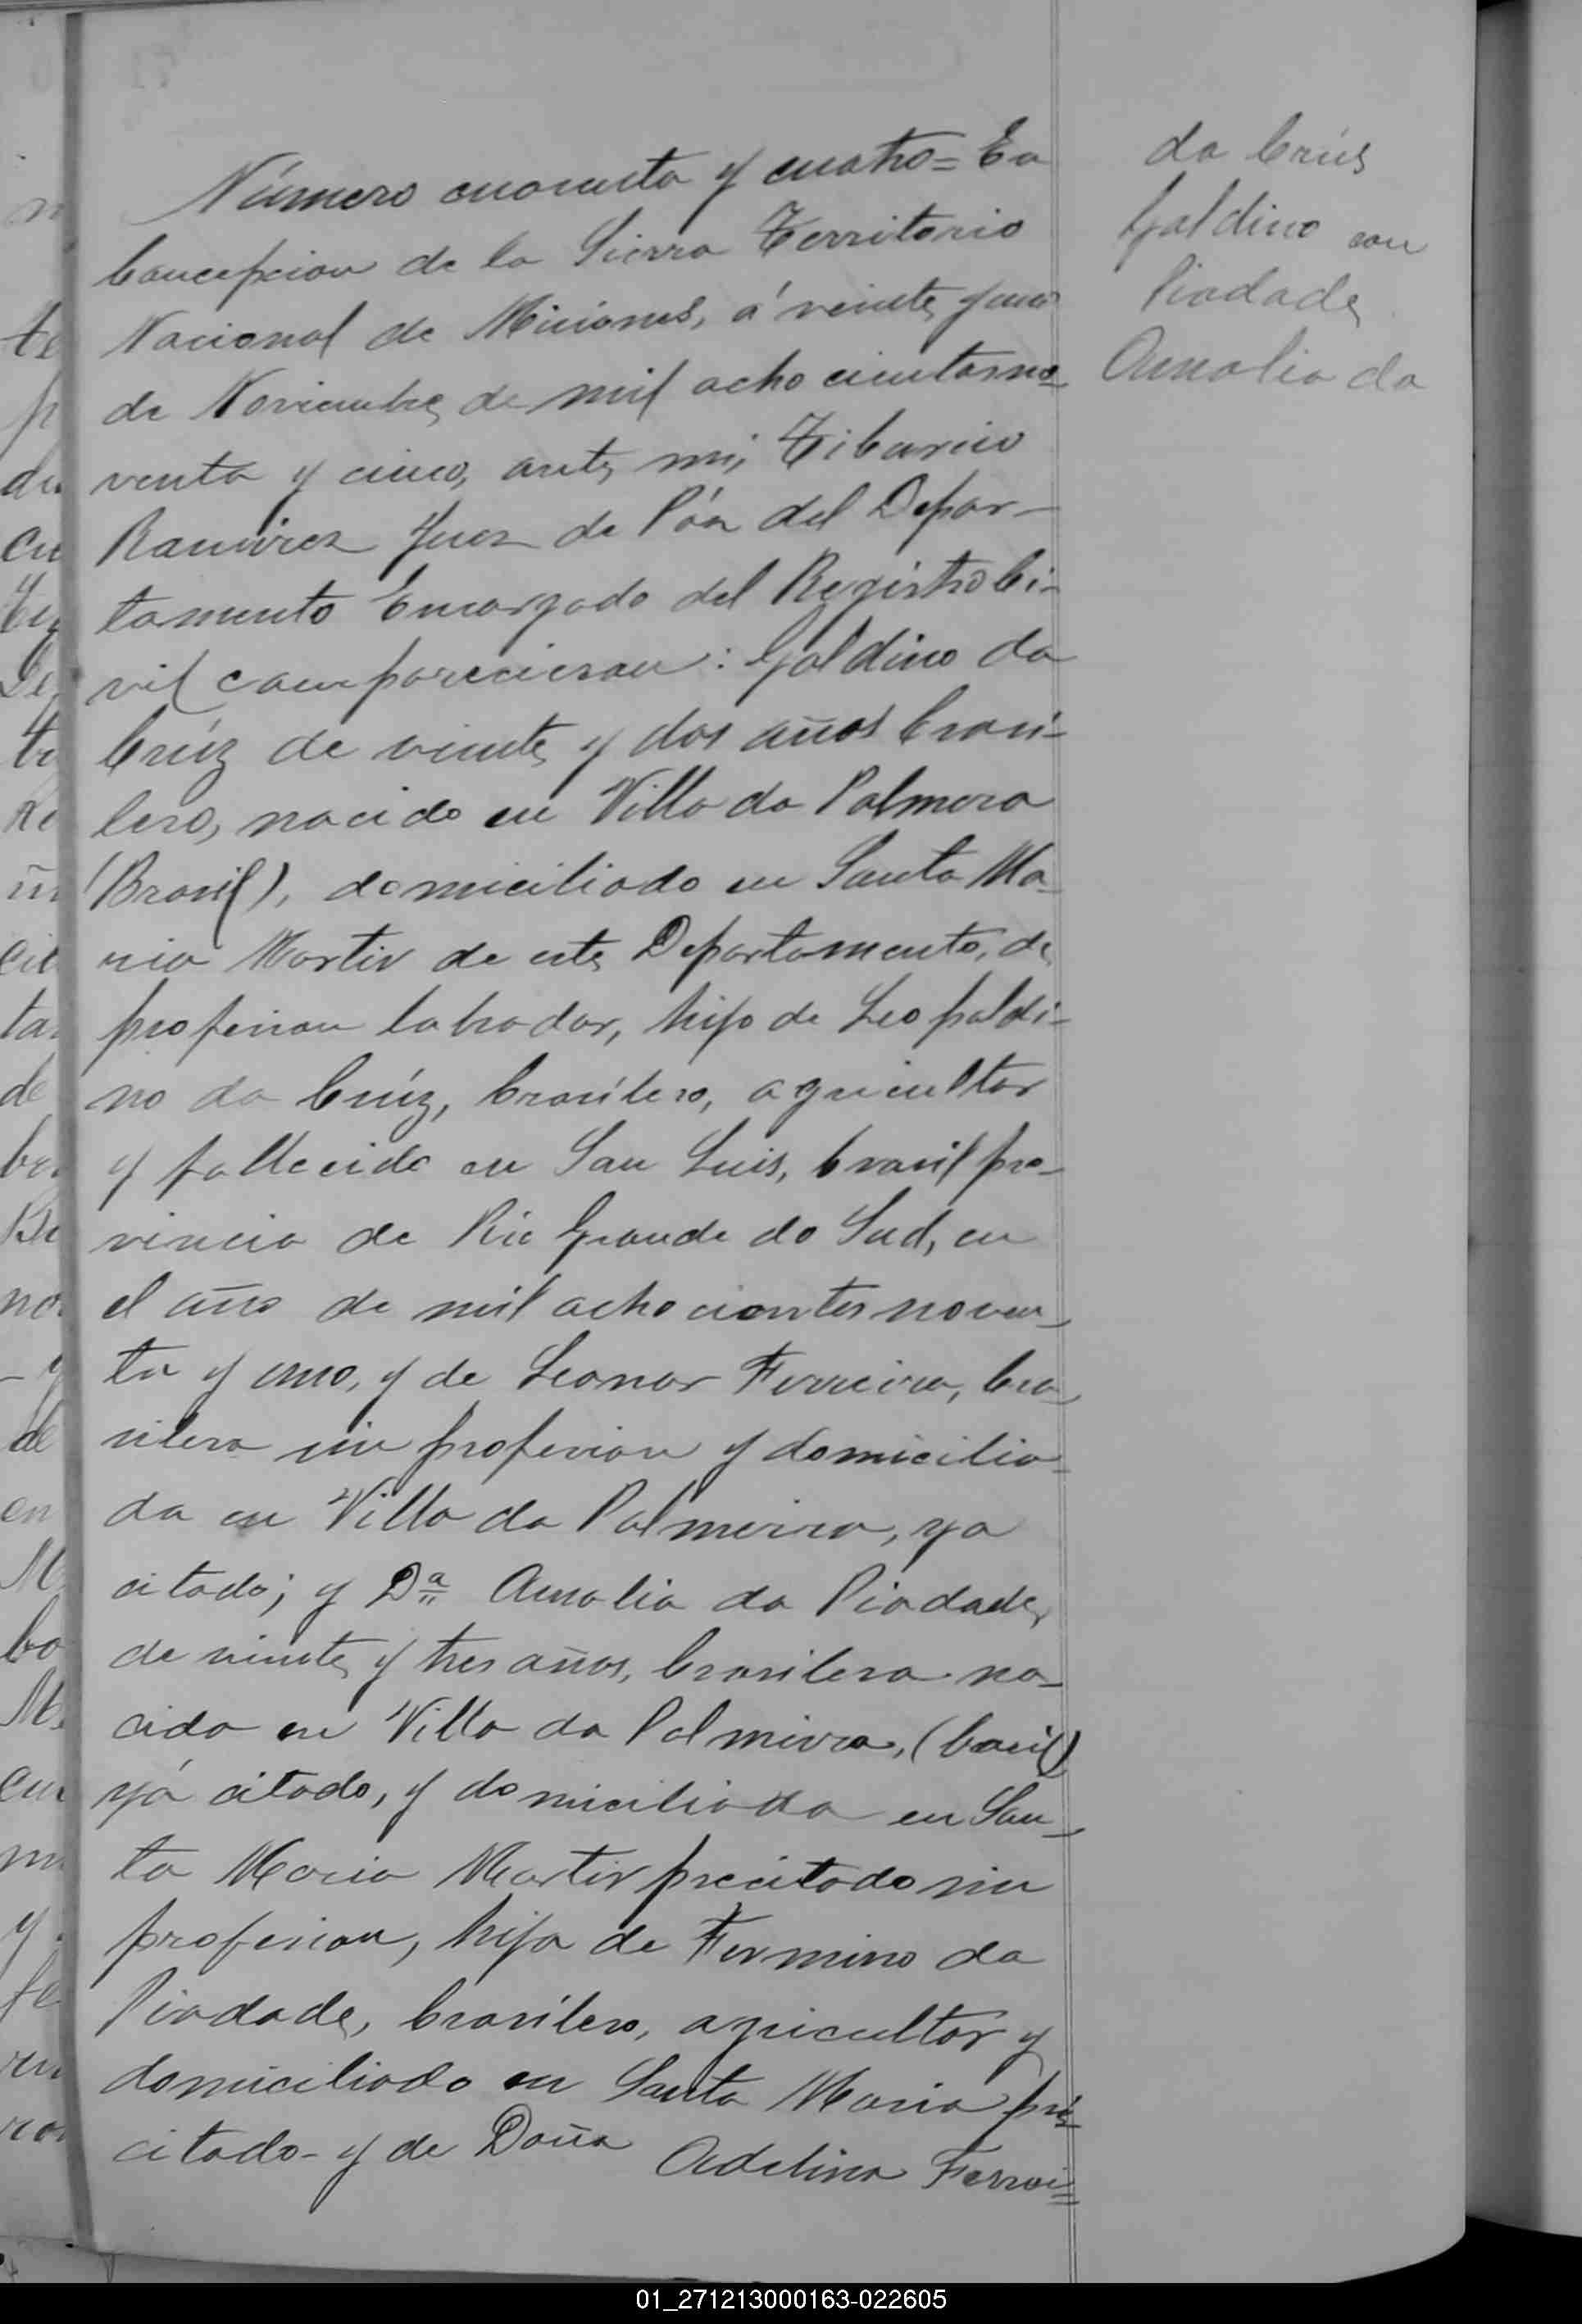 da Crús
Galdino con
Piadade
Amalia da
Número cuarenta y cuatro = En
Concepcion de la Sierra Territorio
Nacional de Miciones, á veinte y uno
de Noviembre de mil ocho cientos no-
venta y cinco, ante mi, Tiburcio
Ramirez Juez de Páz del Depar-
tamento Encargado del Registro Ci-
vil comparecieron: Galdino da
Crúz de veinte y dos años brasi-
lero, nacido en Villa da Palmera
(Brasil), domiciliado en Santa Ma-
ria Martir de este Departamento, de
profesion labrador, hijo de Leopoldi-
no da Crúz, brasilero, agricultor
y fallecido en San Luis, brasil pro-
vincia de Rio Grande do Sud, en
el año de mil ocho cientos noven-
ta y uno, y de Leonor Ferreira, bra-
silera sin profesion y domicilia-
da en Villa da Palmeira, ya
citado; y Dª Amalia da Piadade,
de veinte y tres años, brasilera na-
cida en Villa da Palmeira, (brasil)
yá citado, y domiciliada en San-
ta Maria Martir precitado sin
profesion, hija de Fermino da
Piadade, brasilero, agricultor y
domiciliado en Santa Maria pre-
citado - y de Doña Adelina Ferrei=
01_271213000163-022605